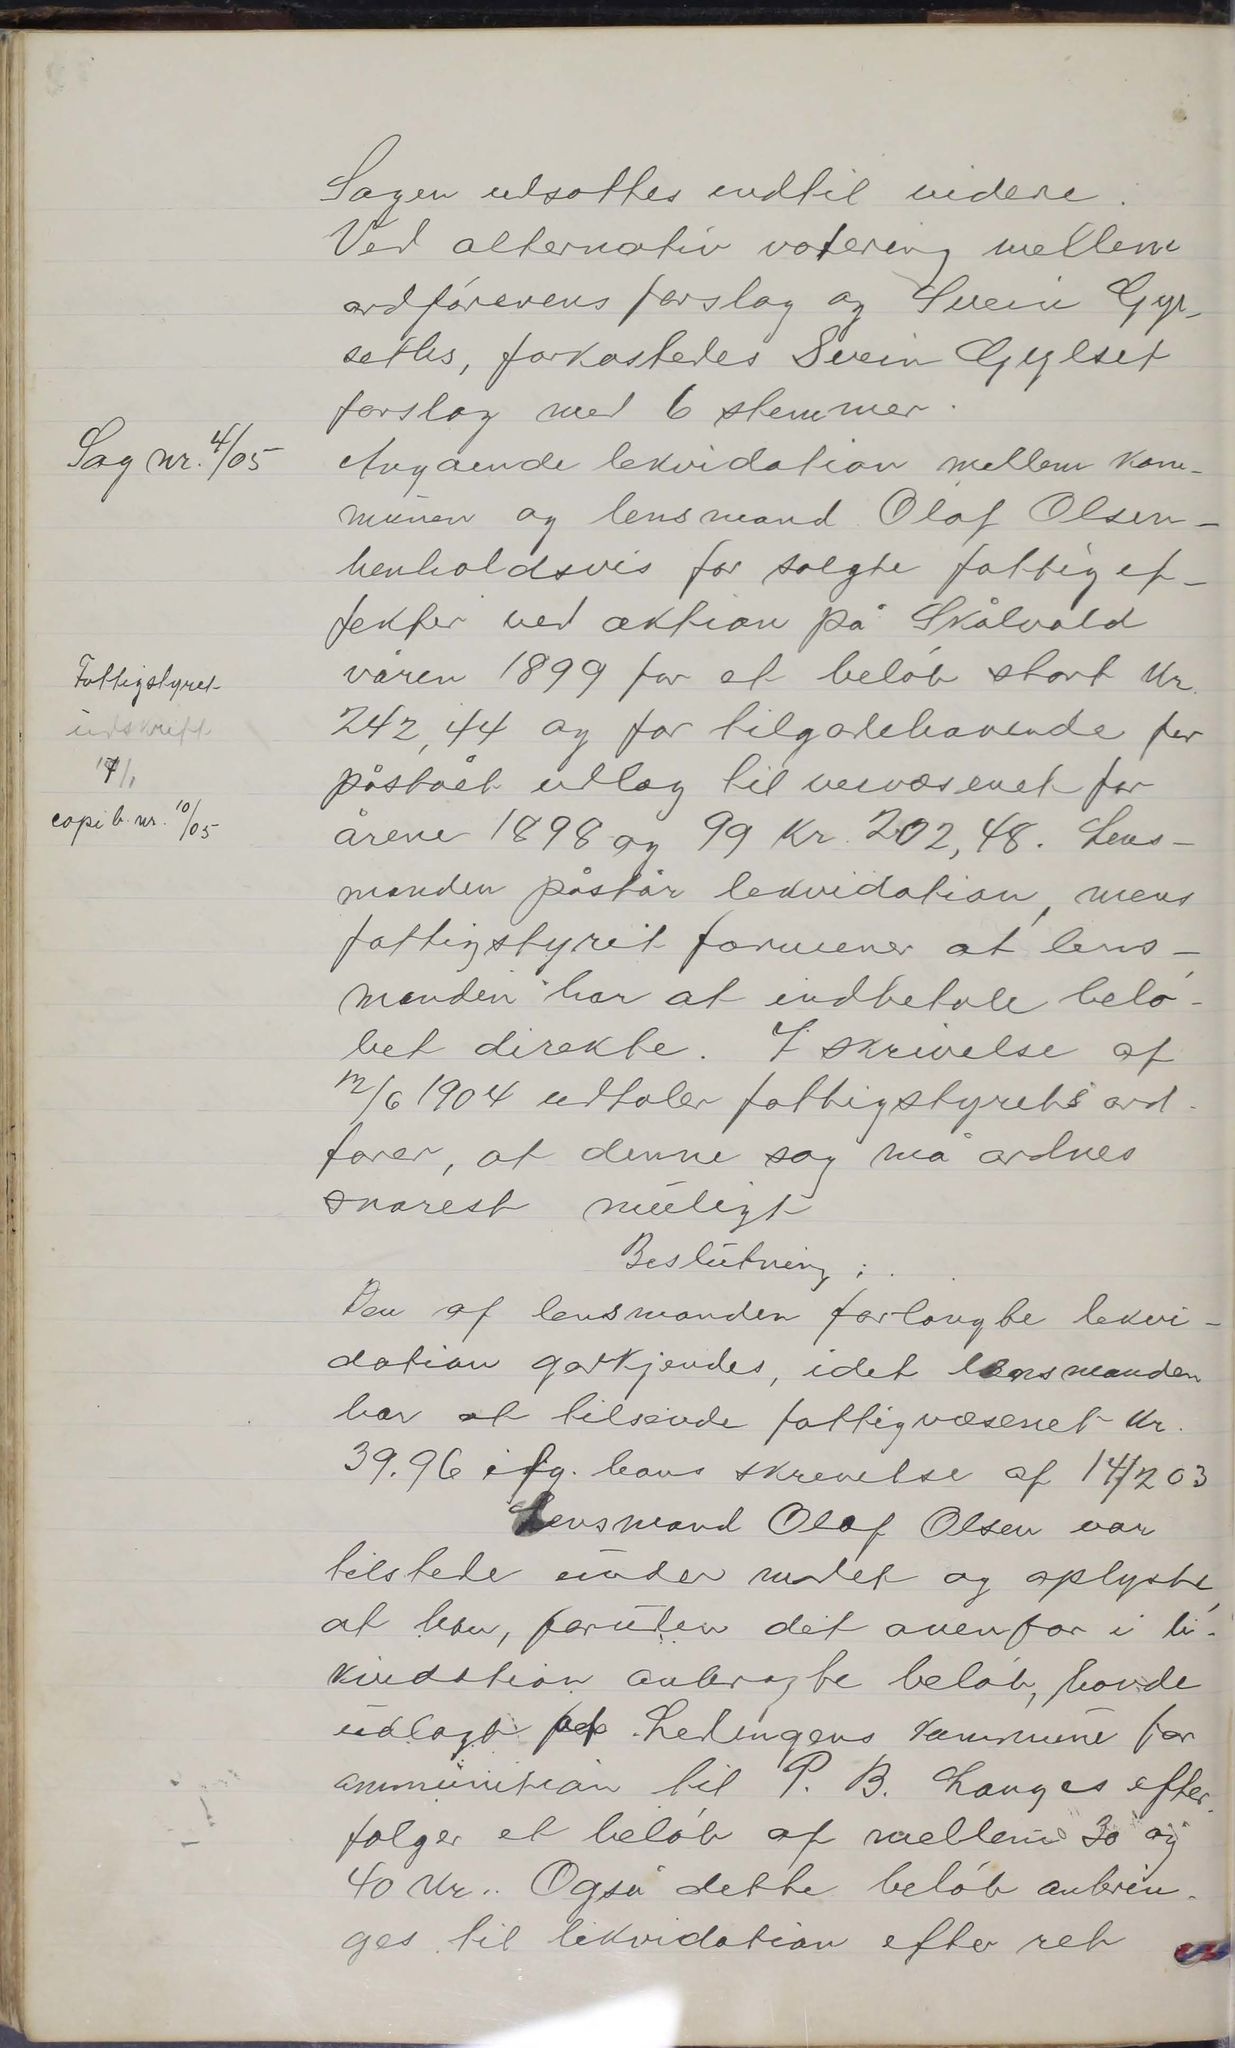 Sagen udsattes indtil videre.
Ved alternativ votering mellem
ordförerens forslag og Svein Gyl-
seths, forkastedes Svein Gylset
forslag med 6 stemmer.
Sag nr. 4/05
Angaende lekvidation mellem kom-
munen og lensmand Olaf Olsen -
henholdsvis for solgte fattigef-
fekter ved aktion på Skålvold
våren 1899 for et belöb stort Kr.
242,44 og for tilgodehavende for
påstået udlæg til veivæsenet for
årene 1898 og 99 Kr. 202,48. Lens-
manden påstår lekvidation, mens
fattigstyret formener at lens-
manden har at indbetale belö-
bet direkte. I skrivelse af
12/6 1904 udtaler fattigstyrets ord-
forer, at denne sag må ordnes
snarest muligt
Fattigstyret
udskrift
17/1
copi b. nr. 10/05
Beslutning:
Den af lensmanden forlangte lekvi-
dation godkjendes, idet lensmanden
har at tilsende fattigvæsenet Kr.
39.96 ifg. hans skrevelse af 14/2 03
Lensmand Olaf Olsen var
tilstede under mødet og oplyste,
at han, foruden det ovenfor i li-
kvidation anbragte belöb, havde
udlagt for Lødingens kommune for
ammunition til P. B. Langes efter-
følger et belöb af mellem 30 og
40 Kr.. Også dette belöb anbrin-
ges til likvidation efter ret